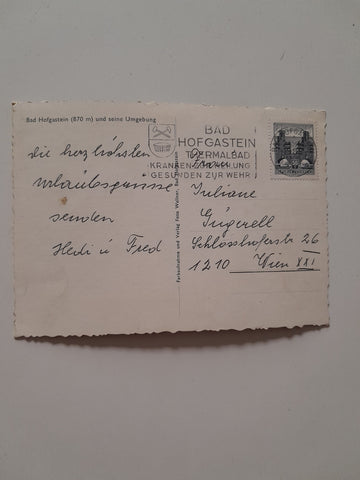 Bad Hofgastein (870 m) und seine Umgebung
BAD
HOFGASTEIN
THERMALBAD
KRANKEN ZUR HEILUNG
GESUNDEN ZUR WEHR
die herzlichsten
Urlaubsgrüsse
senden
Hedi u Fred
Farbaufnahme und Verlag Foto Wallner, Bad Hofgastein
Frau
Juliane
Gügerell
Schlosshoferstr 26
1210 Wien XXI